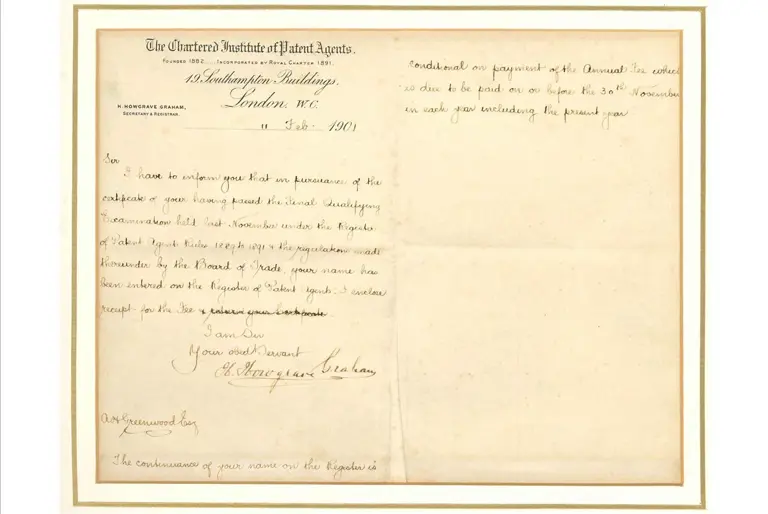 The Chartered Institute of Patent Agents.
FOUNDED 1882. INCORPORATED BY ROYAL CHARTER 1891.
19, Southampton Buildings,
London, W.C.
H. HOWGRAVE GRAHAM,
SECRETARY & REGISTRAR.
11 Feb. 1901
Sir
I have to inform you that in pursuance of the
certificate of your having passed the Final Qualifying
Examination held last November under the Register
of Patent Agents Rules 1889 & 1891 & the regulations made
thereunder by the Board of Trade, your name has
been entered on the Register of Patent Agents. I enclose
receipt for the Fee & return your Certificate.
I am Sir
Your obedt Servant
H. Howgrave Graham
A H Greenwood Esq
The continuance of your name on the Register is
conditional on payment of the Annual Fee which
is due to be paid on or before the 30th November
in each year including the present year